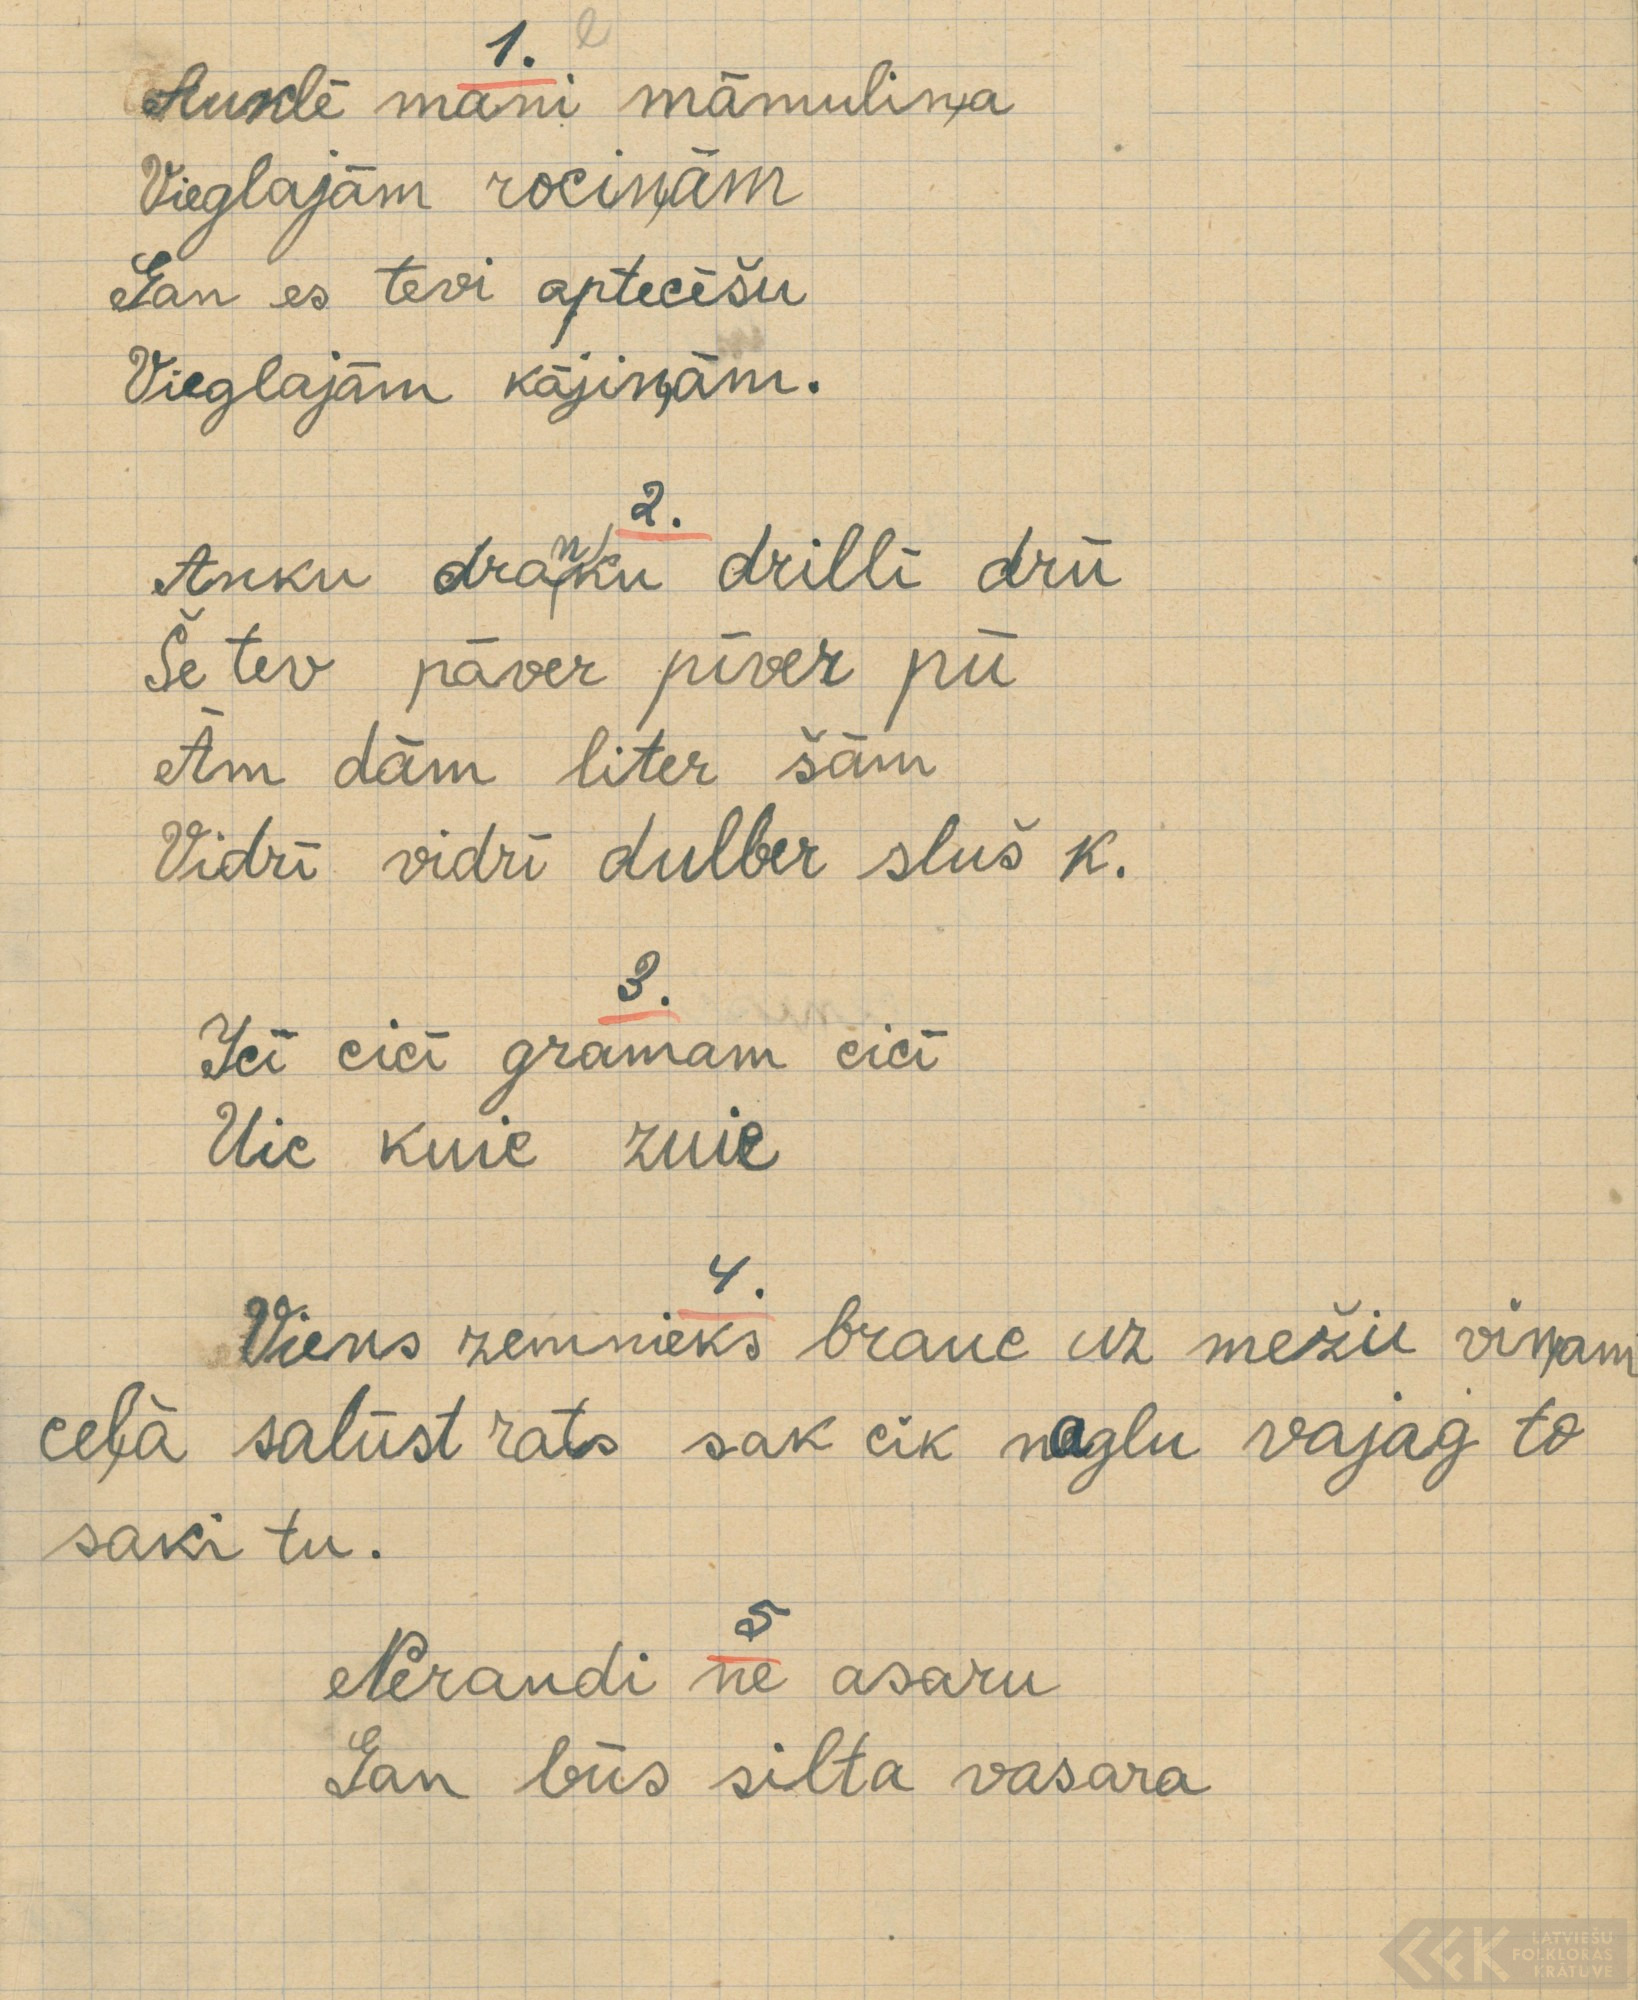 1. l
Auklē mani māmulin̦a
Vieglajām rocin̦ām
Gan es tevi aptecēšu
Vieglajām kājin̦ām.
2.
Anku dranku drillī drū
Še tev pāver pīver pū
Ām dām liter šām
Vidrī vidrī dulber sluš k.
3.
Icī cicī gramam cicī
Uic kuic zuic
4.
Viens zemnieks brauc uz mežu viņam
ceļā salūst rats sak cik naglu vajag to
saki tu.
5
Neraudi ne asaru
Gan būs silta vasara
LATVIEŠU
FOLKLORAS
KRĀTUVE